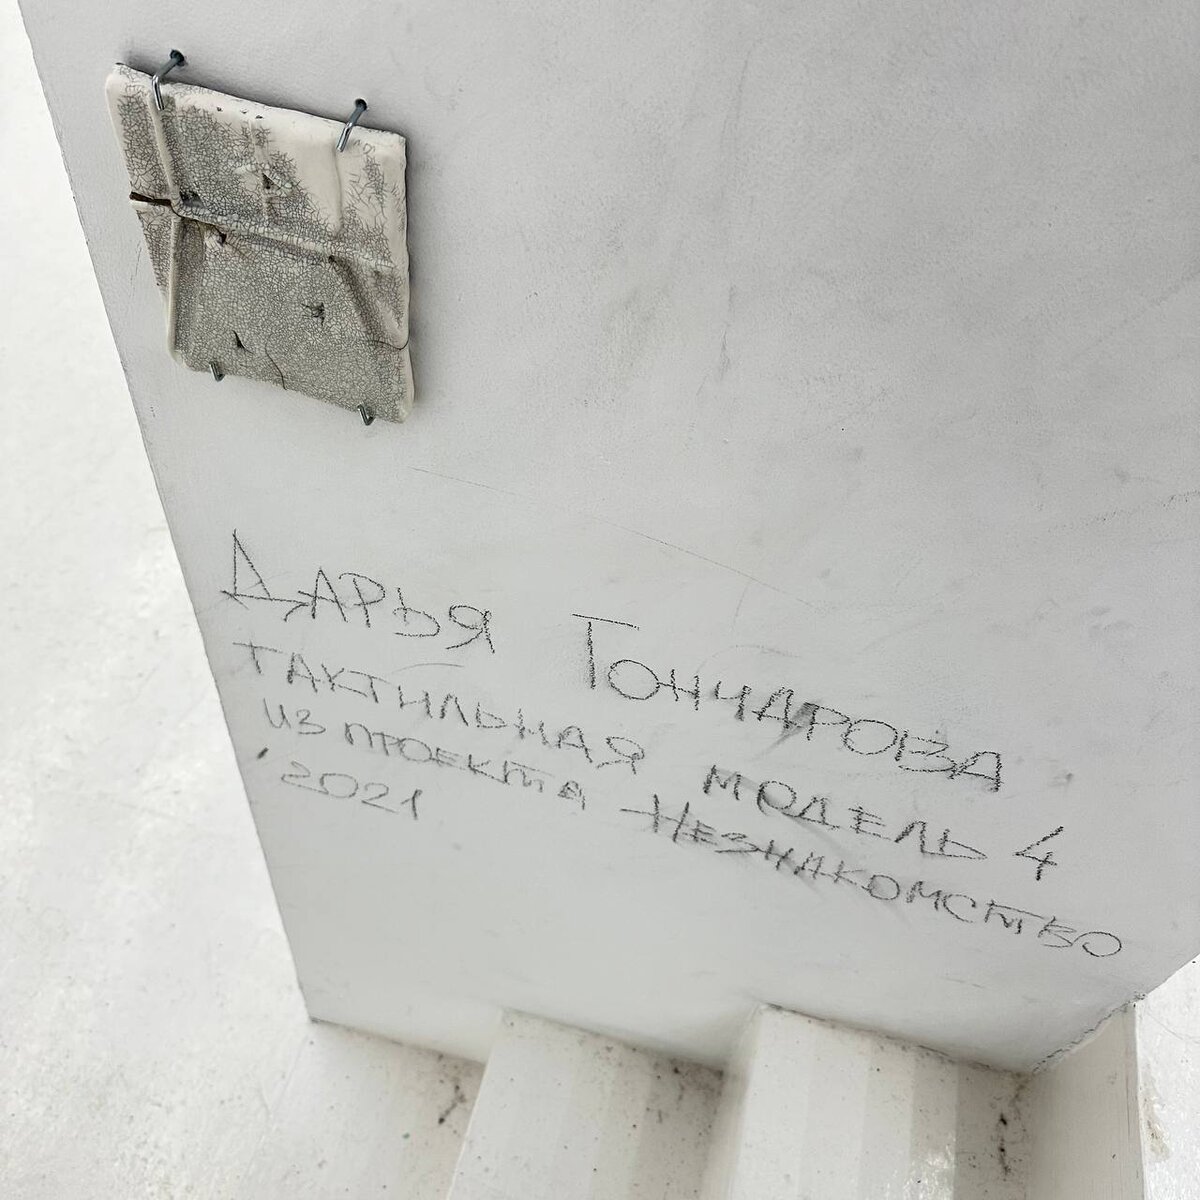 ДАРЬЯ ГОНЧАРОВА
ТАКТИЛЬНАЯ МОДЕЛЬ 4
ИЗ ПРОЕКТА НЕЗНАКОМСТВО
2021